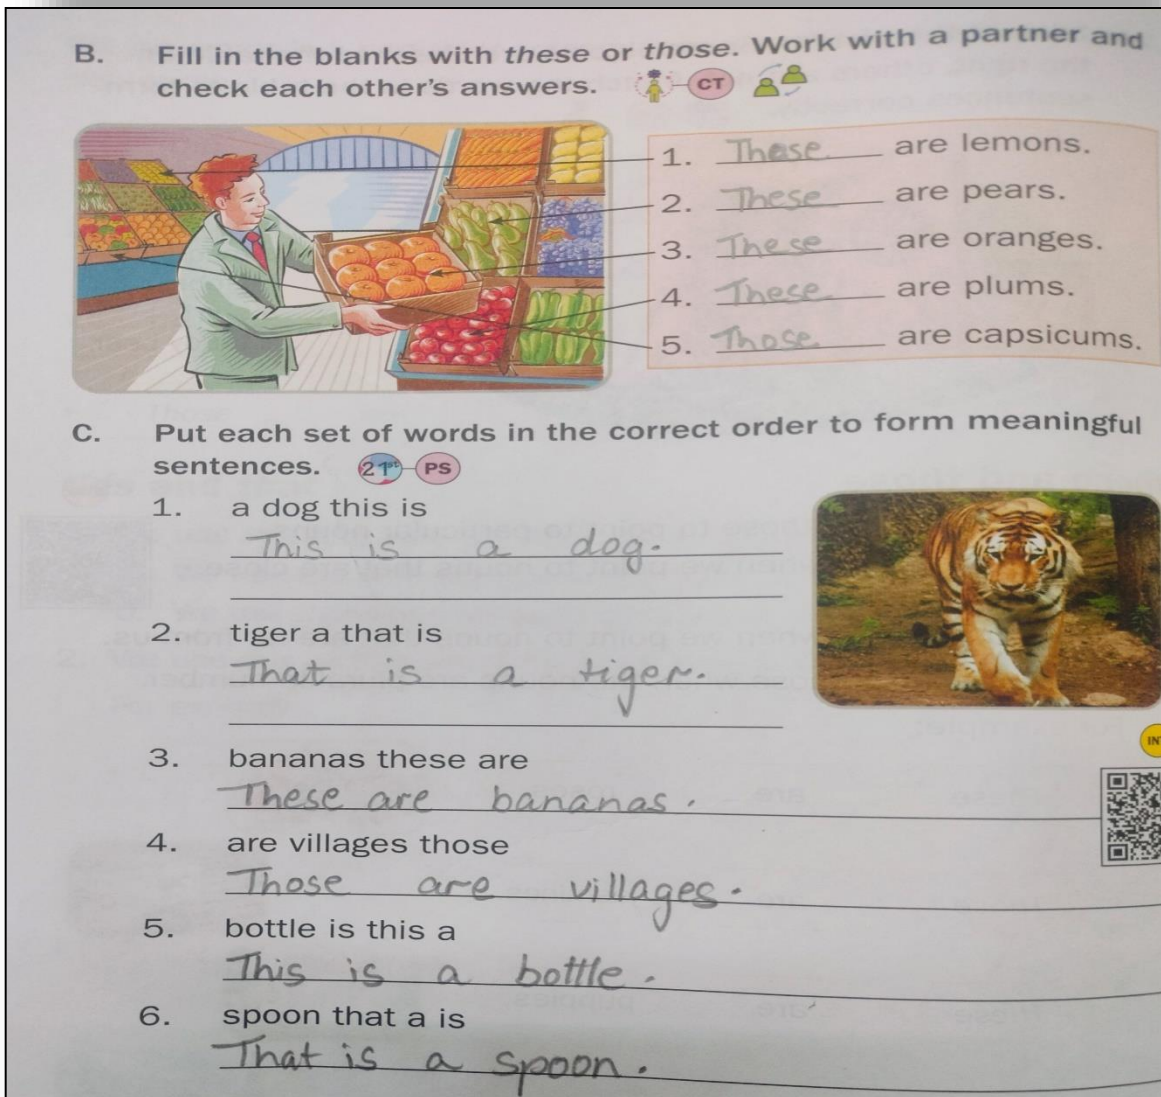 B. Fill in the blanks with these or those. Work with a partner and
check each other's answers. CT
1. are lemons.
2. These are pears.
3. These are oranges.
4. These are plums.
5. Those are capsicums.
C. Put each set of words in the correct order to form meaningful
sentences. 21st PS
1. a dog this is
This is a dog.
2. tiger a that is
That is a tiger.
IN
3. bananas these are
These are bananas.
4. are villages those
Those are villages.
5. bottle is this a
This is a bottle.
6. spoon that a is
That is a spoon.